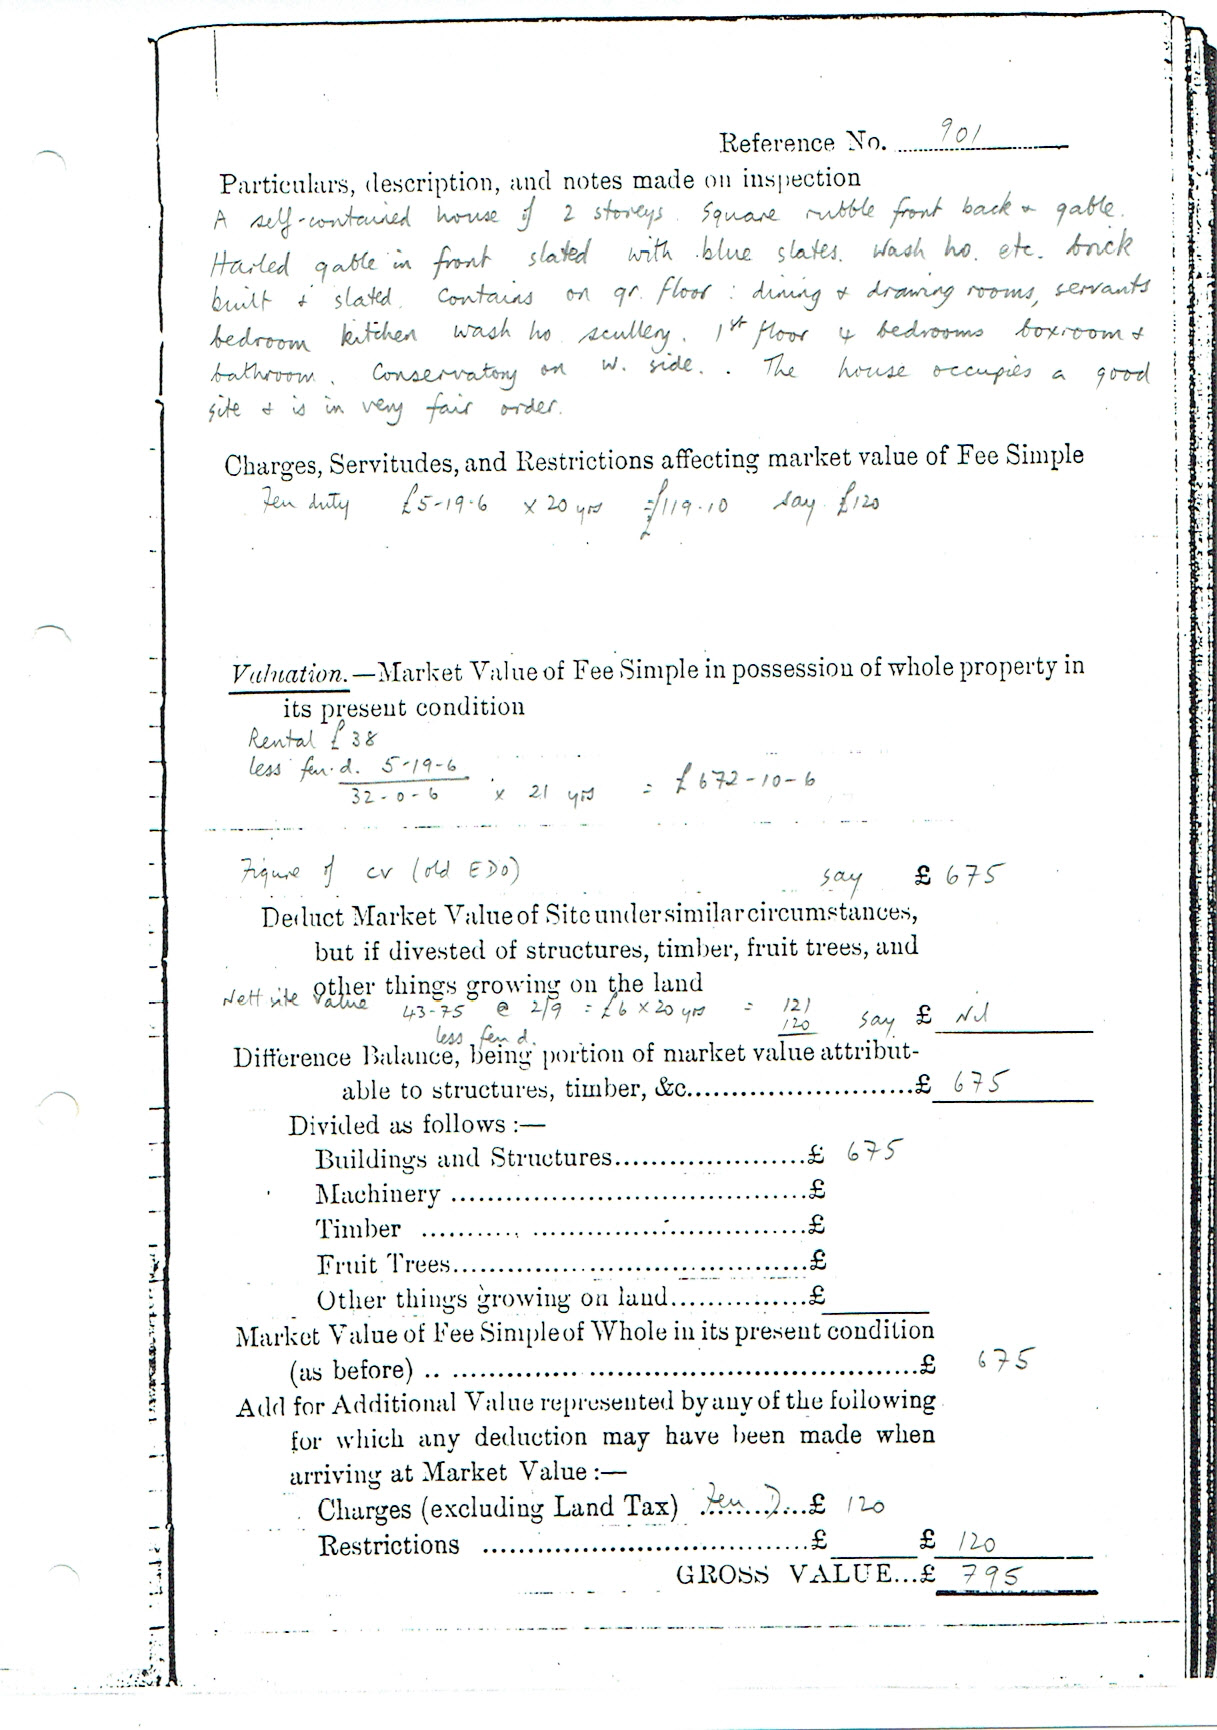 Reference No. 901
Particulars, description, and notes made on inspection
A self-contained house of 2 storeys. Square rubble front back & gable.
Harled gable in front slated with blue slates. Wash ho. etc. brick
built & slated. Contains on gr. floor : dining & drawing rooms, servants
bedroom kitchen wash ho scullery. 1st floor 4 bedrooms boxroom &
bathroom. Conservatory on w. side. . The house occupies a good
site & is in very fair order.
Charges, Servitudes, and Restrictions affecting market value of Fee Simple
Feu duty £5-19-6 x 20 yrs = £119.10 say £120
Valuation.—Market Value of Fee Simple in possession of whole property in
its present condition
Rental £38
less feu.d. 5-19-6
32-0-6 x 21 yrs = £672-10-6
Figure of cv (old EDO) say £ 675
Deduct Market Value of Site under similar circumstances,
but if divested of structures, timber, fruit trees, and
other things growing on the land
Nett site value 43-75 @ 2/9 = £6 x 20 yrs = 121
less feu d. 120 say £ Nil
Difference Balance, being portion of market value attribut-
able to structures, timber, &c.........................£ 675
Divided as follows :—
Buildings and Structures......................£ 675
Machinery ........................................£
Timber ........................................£
Fruit Trees........................................£
Other things growing on land................£
Market Value of Fee Simple of Whole in its present condition
(as before) ........................................£ 675
Add for Additional Value represented by any of the following
for which any deduction may have been made when
arriving at Market Value :—
Charges (excluding Land Tax) Feu D....£ 120
Restrictions ......................................£ £ 120
GROSS VALUE...£ 795